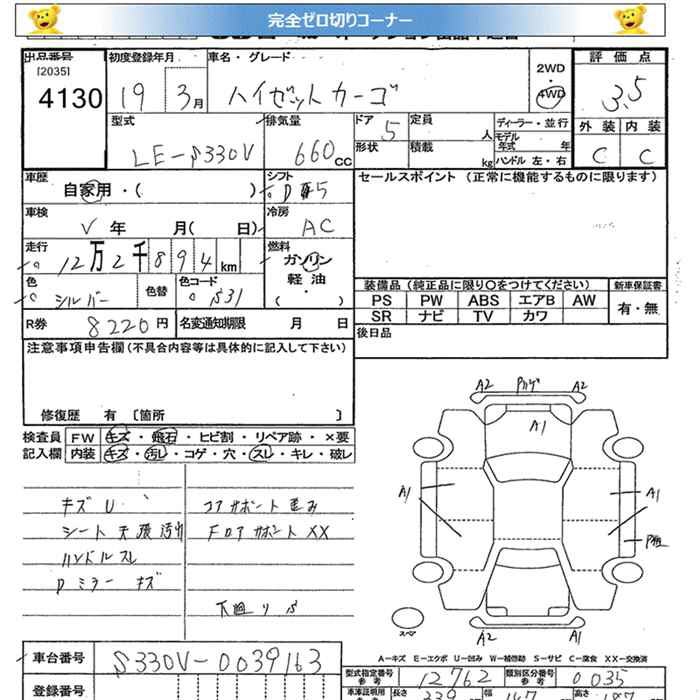 完全ゼロ切りコーナー
出品番号 初度登録年月 車名・グレード 2WD・4WD 評価点
[2035]
4130 19 3月 ハイゼットカーゴ 3.5
型式 LE-S330V 排気量 660cc ドア 5 定員 人 ディーラー・並行 外装 内装
形状 積載 kg モデル年式 年 ハンドル 左・右 C C
車歴 自家用・( ) シフト D 5 セールスポイント (正常に機能するものに限ります)
車検 年 月( 日) 冷房 AC
走行 12万2千894km 燃料 ガソリン 軽油 ・( )
色 シルバー 色替 色コード S31 装備品 (純正品に限り〇をつけてください) 新車保証書
PS PW ABS エアB AW 有・無
SR ナビ TV カワ
R券 8220円 名変通知期限 月 日 後日品
注意事項申告欄 (不具合内容等は具体的に記入して下さい)
修復歴 有 [箇所 ]
検査員 FW キズ・飛石・ヒビ割・リペア跡・×要
記入欄 内装 キズ・汚レ・コゲ・穴・スレ・キレ・破レ
キズ U コアサポート歪み
シート天張汚れ Fロアサポート XX
ハンドルスレ
Dミラーキズ
下廻りS
A2 A2
A1
A1 A1
スペア A2 A1
A-キズ E-エクボ U-凹み W-補修跡 S-サビ C-腐食 XX-交換済
車台番号 S330V-0039163 型式指定番号 参考 12762 類別区分番号 参考 0035
登録番号 車庫証明用 参考 長さ 339 幅 147 高さ 187